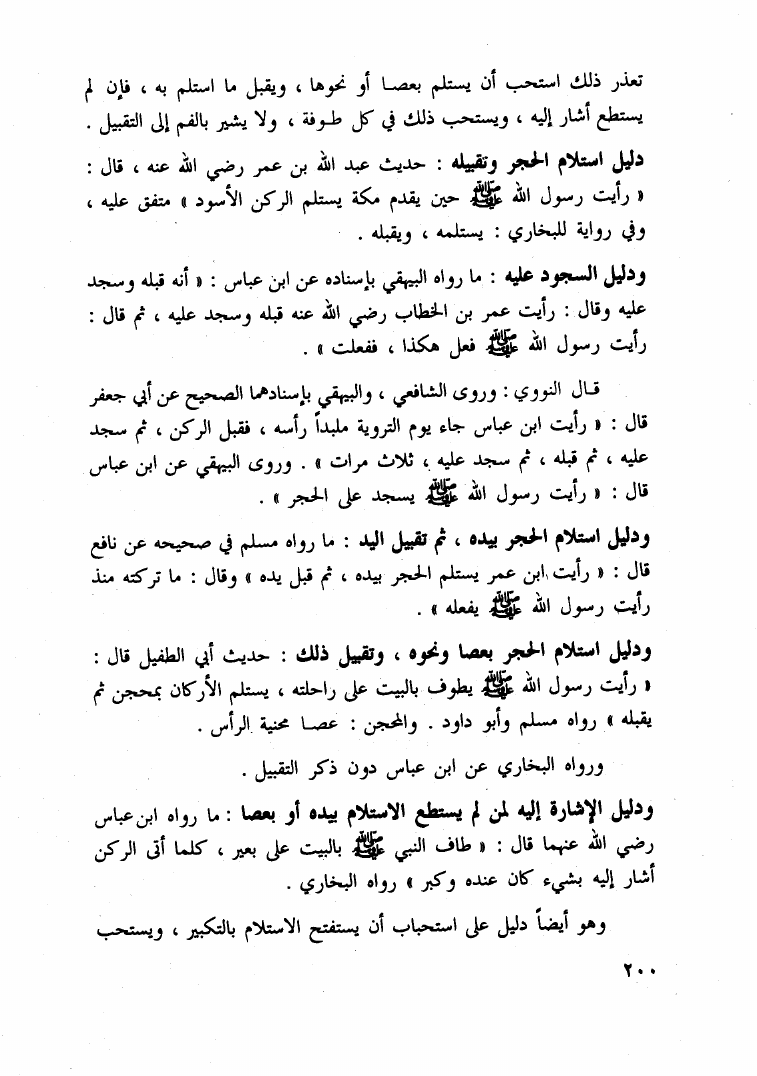 تعذر ذلك استحب أن يستلم بعصا أو نحوها ، ويقبل ما استلم به ، فإن لم
يستطع أشار إليه ، ويستحب ذلك في كل طوفة ، ولا يشير بالفم إلى التقبيل .
دليل استلام الحجر وتقبيله : حديث عبد الله بن عمر رضي الله عنه ، قال :
« رأيت رسول الله ﷺ حين يقدم مكة يستلم الركن الأسود » متفق عليه ،
وفي رواية للبخاري : يستلمه ، ويقبله .
ودليل السجود عليه : ما رواه البيهقي بإسناده عن ابن عباس : « أنه قبله وسجد
عليه وقال : رأيت عمر بن الخطاب رضي الله عنه قبله وسجد عليه ، ثم قال :
رأيت رسول الله ﷺ فعل هكذا ، ففعلت » .
قال النووي : وروى الشافعي ، والبيهقي بإسنادهما الصحيح عن أبي جعفر
قال : « رأيت ابن عباس جاء يوم التروية ملبداً رأسه ، فقبل الركن ، ثم سجد
عليه ، ثم قبله ، ثم سجد عليه ، ثلاث مرات » . وروى البيهقي عن ابن عباس
قال : « رأيت رسول الله ﷺ يسجد على الحجر » .
ودليل استلام الحجر بيده ، ثم تقبيل اليد : ما رواه مسلم في صحيحه عن نافع
قال : « رأيت ابن عمر يستلم الحجر بيده ، ثم قبل يده » وقال : ما تركته منذ
رأيت رسول الله ﷺ يفعله » .
ودليل استلام الحجر بعصا ونحوه ، وتقبيل ذلك : حديث أبي الطفيل قال :
« رأيت رسول الله ﷺ يطوف بالبيت على راحلته ، يستلم الأركان بمحجن ثم
يقبله » رواه مسلم وأبو داود . والمحجن : عصا محنية الرأس .
ورواه البخاري عن ابن عباس دون ذكر التقبيل .
ودليل الإشارة إليه لمن لم يستطع الاستلام بيده أو بعصا : ما رواه ابن عباس
رضي الله عنهما قال : « طاف النبي ﷺ بالبيت على بعير ، كلما أتى الركن
أشار إليه بشيء كان عنده وكبر » رواه البخاري .
وهو أيضاً دليل على استحباب أن يستفتح الاستلام بالتكبير ، ويستحب
٢٠٠